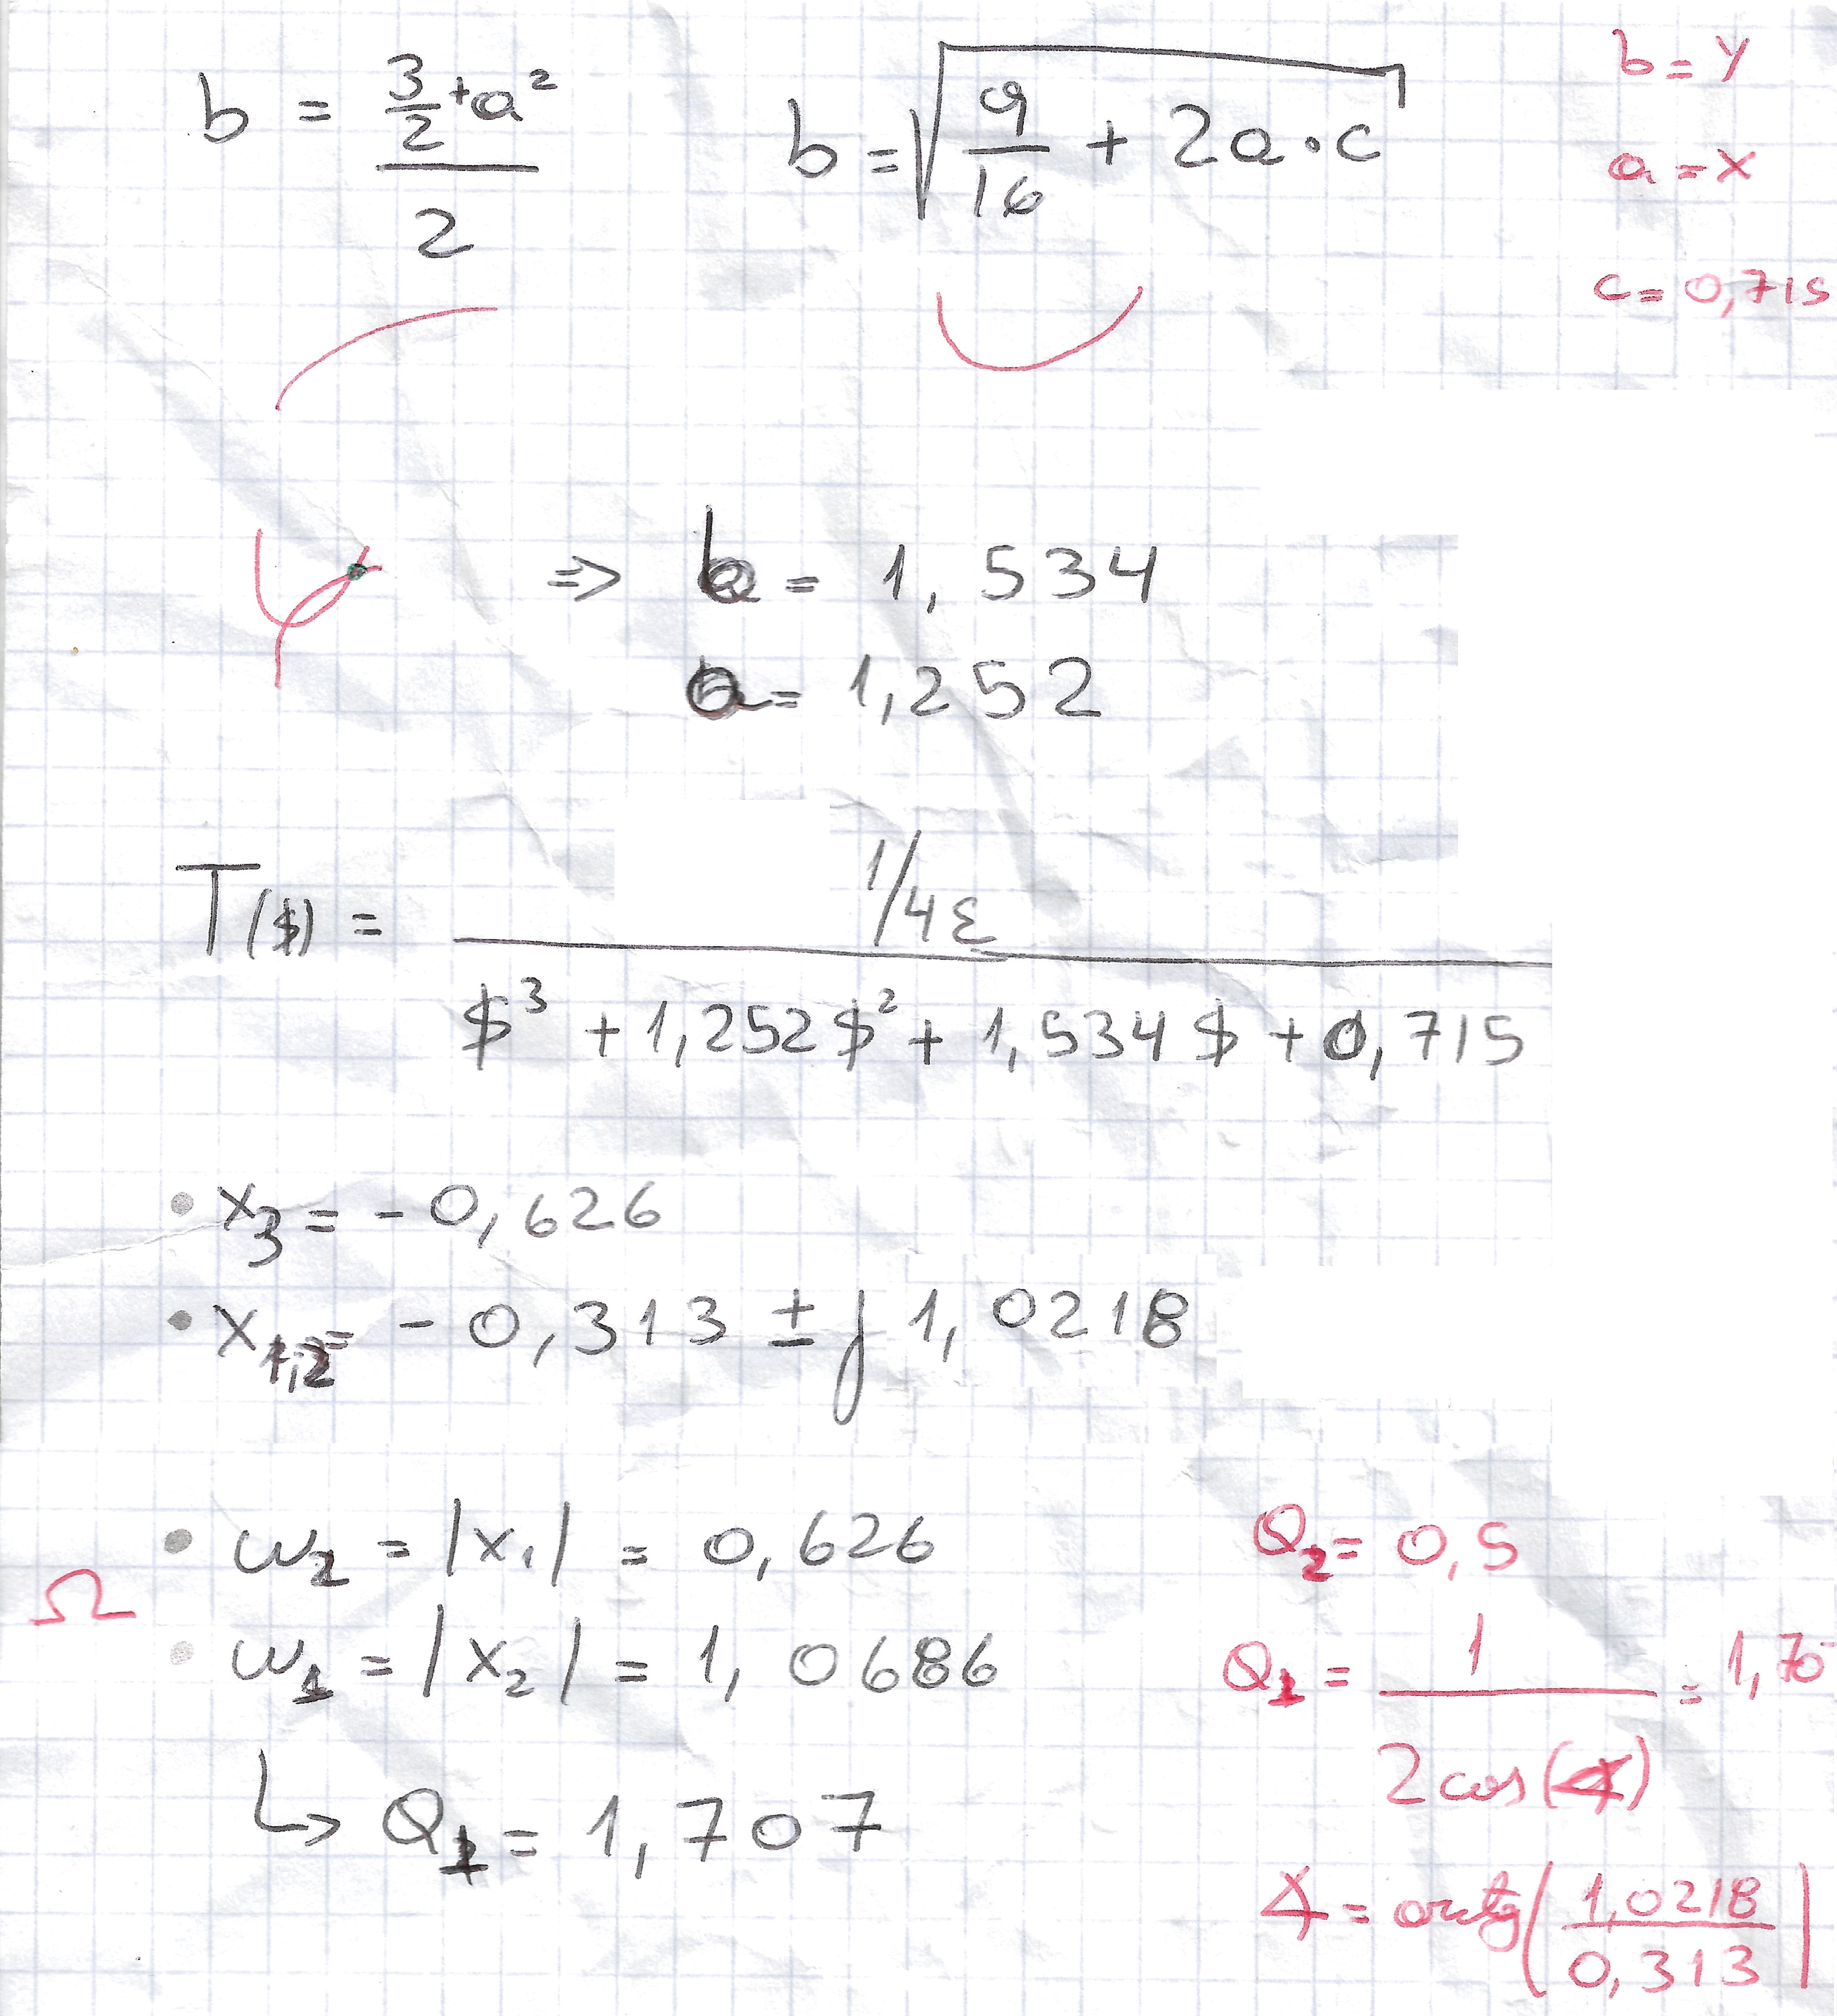 b = (3/2 + a²)/2    b = √(9/16 + 2a·c)    b = y
a = x
c = 0,715
⇒ b = 1,534
a = 1,252
T($) = (1/4ε)/($³ + 1,252$² + 1,534$ + 0,715)
• x₃ = - 0,626
• x₁,₂ = - 0,313 ± j 1,0218
• ω₂ = |x₁| = 0,626    Q₂ = 0,5
Ω
• ω₁ = |x₂| = 1,0686    Q₁ = 1/(2cos(∢)) = 1,70
↳ Q₁ = 1,707
∢ = arctg(1,0218/0,313)